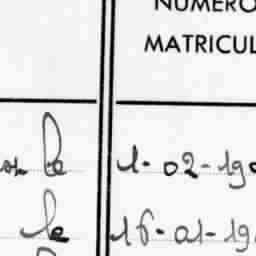 NUMERO
MATRICUL
le 1-02-190
le 16-01-19